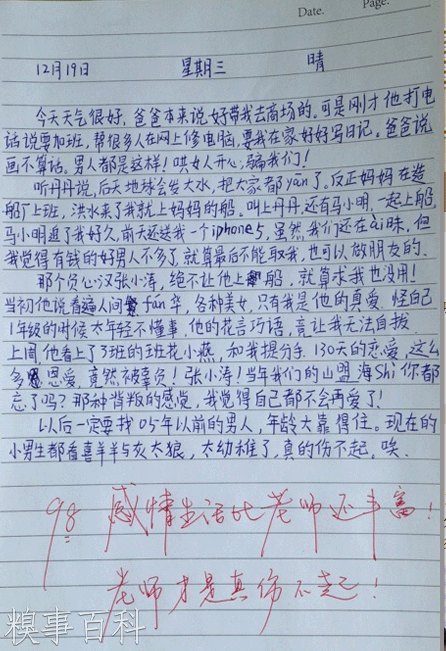 Date.
Page.
12月19日 星期三 晴
今天天气很好，爸爸本来说好带我去商场的。可是刚才他打电
话说要加班，帮很多人在网上修电脑，要我在家好好写日记。爸爸说
画不算话。男人都是这样！哄女人开心，骗我们！
听丹丹说，后天地球会发大水，把大家都yān了。反正妈妈在造
船厂上班，洪水来了我就上妈妈的船。叫上丹丹，还有马小明，一起上船，
马小明追了我好久，前天还送我一个iphone5，虽然我们还在ài昧，但
我觉得有钱的好男人不多了，就算最后不能取我，也可以做朋友的。
那个负心汉张小涛，绝不让他上船，就算求我也没用！
当初他说看遍人间fán华，各种美女，只有我是他的真爱，怪自己
1年级的时候太年轻不懂事，他的花言巧语，竟让我无法自拔。
上周他看上了3班的班花小燕，和我提分手，130天的恋爱，这么
多恩爱，竟然被辜负！张小涛！当年我们的山盟海Shì你都
忘了吗？那种背叛的感觉，我觉得自己都不会再爱了！
以后一定要找05年以前的男人，年龄大靠得住。现在的
小男生都看喜羊羊与灰太狼，太幼稚了，真的伤不起，唉。
98 感情生活比老师还丰富！
老师才是真伤不起！
糗事百科